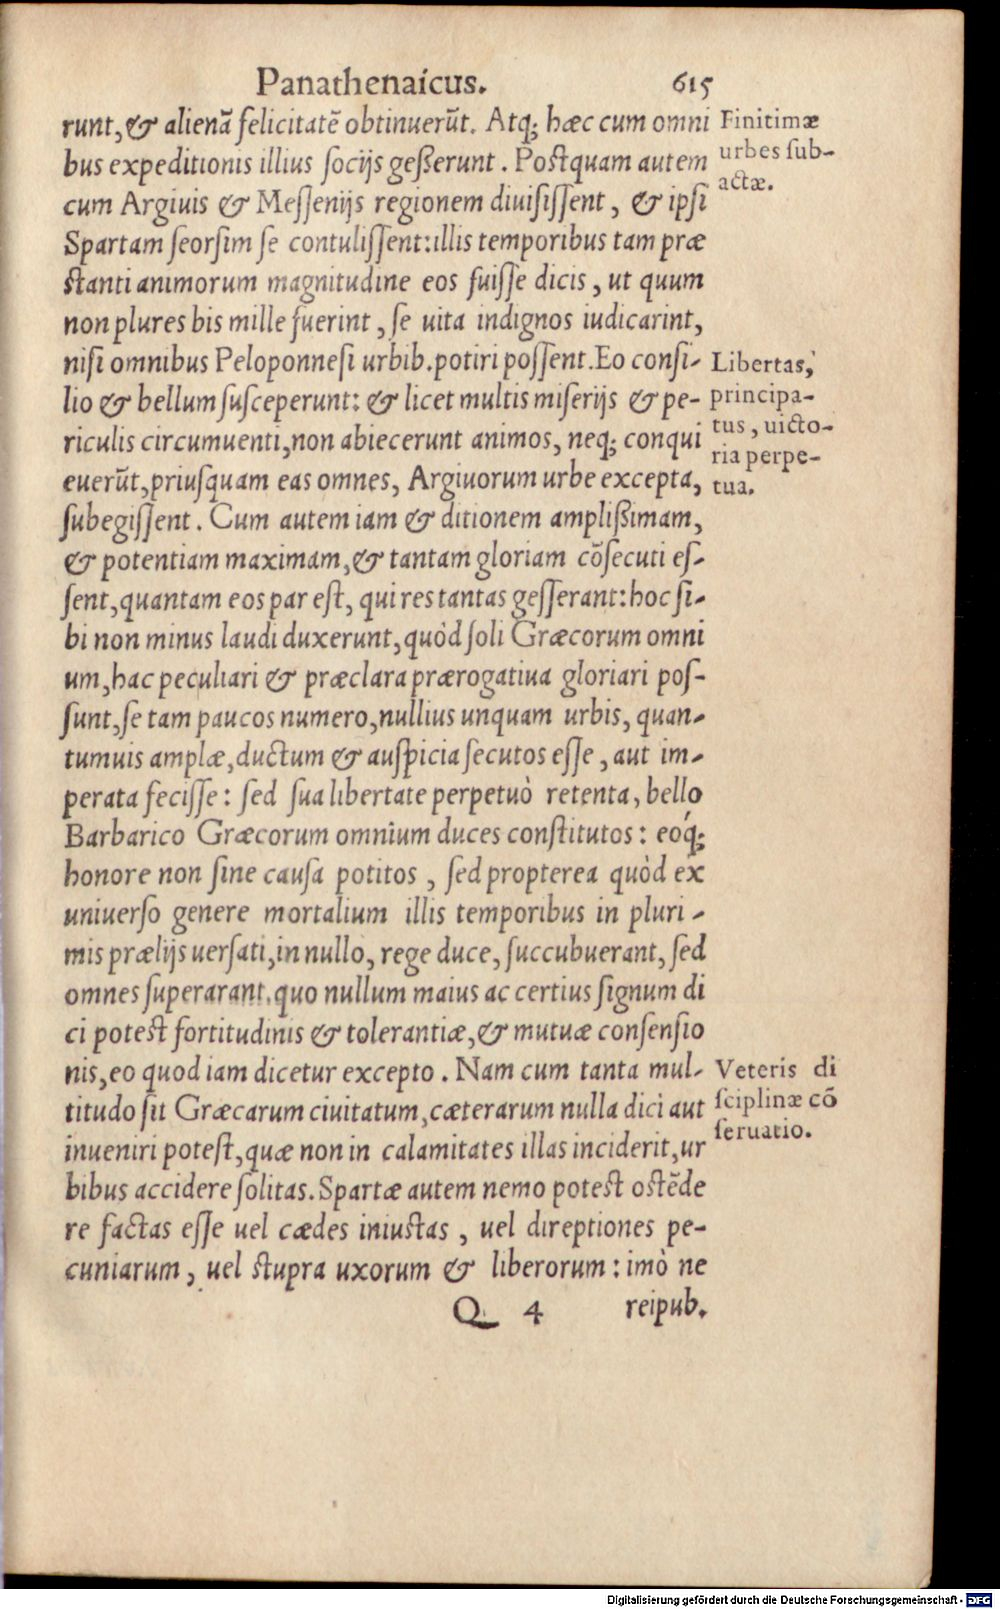 Panathenaicus. 615
runt, & alienã felicitatẽ obtinuerũt. Atq; hæc cum omni
bus expeditionis illius socijs geßerunt. Postquam autem
cum Argiuis & Messenijs regionem diuisissent, & ipsi
Spartam seorsim se contulissent: illis temporibus tam præ
stanti animorum magnitudine eos fuisse dicis, ut quum
non plures bis mille fuerint, se uita indignos iudicarint,
nisi omnibus Peloponnesi urbib. potiri possent. Eo consi-
lio & bellum susceperunt: & licet multis miserijs & pe-
riculis circumuenti, non abiecerunt animos, neq; conqui
euerũt, priusquam eas omnes, Argiuorum urbe excepta,
subegissent. Cum autem iam & ditionem amplißimam,
& potentiam maximam, & tantam gloriam cõsecuti es-
sent, quantam eos par est, qui res tantas gesserant: hoc si-
bi non minus laudi duxerunt, quòd soli Græcorum omni
um, hac peculiari & præclara prærogatiua gloriari pos-
sunt, se tam paucos numero, nullius unquam urbis, quan-
tumuis amplæ, ductum & auspicia secutos esse, aut im-
perata fecisse: sed sua libertate perpetuò retenta, bello
Barbarico Græcorum omnium duces constitutos: eoq́;
honore non sine causa potitos, sed propterea quòd ex
uniuerso genere mortalium illis temporibus in pluri-
mis prælijs uersati, in nullo, rege duce, succubuerant, sed
omnes superarant. quo nullum maius ac certius signum di
ci potest fortitudinis & tolerantiæ, & mutuæ consensio
nis, eo quod iam dicetur excepto. Nam cum tanta mul-
titudo sit Græcarum ciuitatum, cæterarum nulla dici aut
inueniri potest, quæ non in calamitates illas inciderit, ur
bibus accidere solitas. Spartæ autem nemo potest ostẽde
re factas esse uel cædes iniustas, uel direptiones pe-
cuniarum, uel stupra uxorum & liberorum: imò ne
Q 4 reipub.
Finitimæ
urbes sub-
actæ.
Libertas,
principa-
tus, uicto-
ria perpe-
tua.
Veteris di
sciplinæ cõ
seruatio.
Digitalisierung gefördert durch die Deutsche Forschungsgemeinschaft - DFG